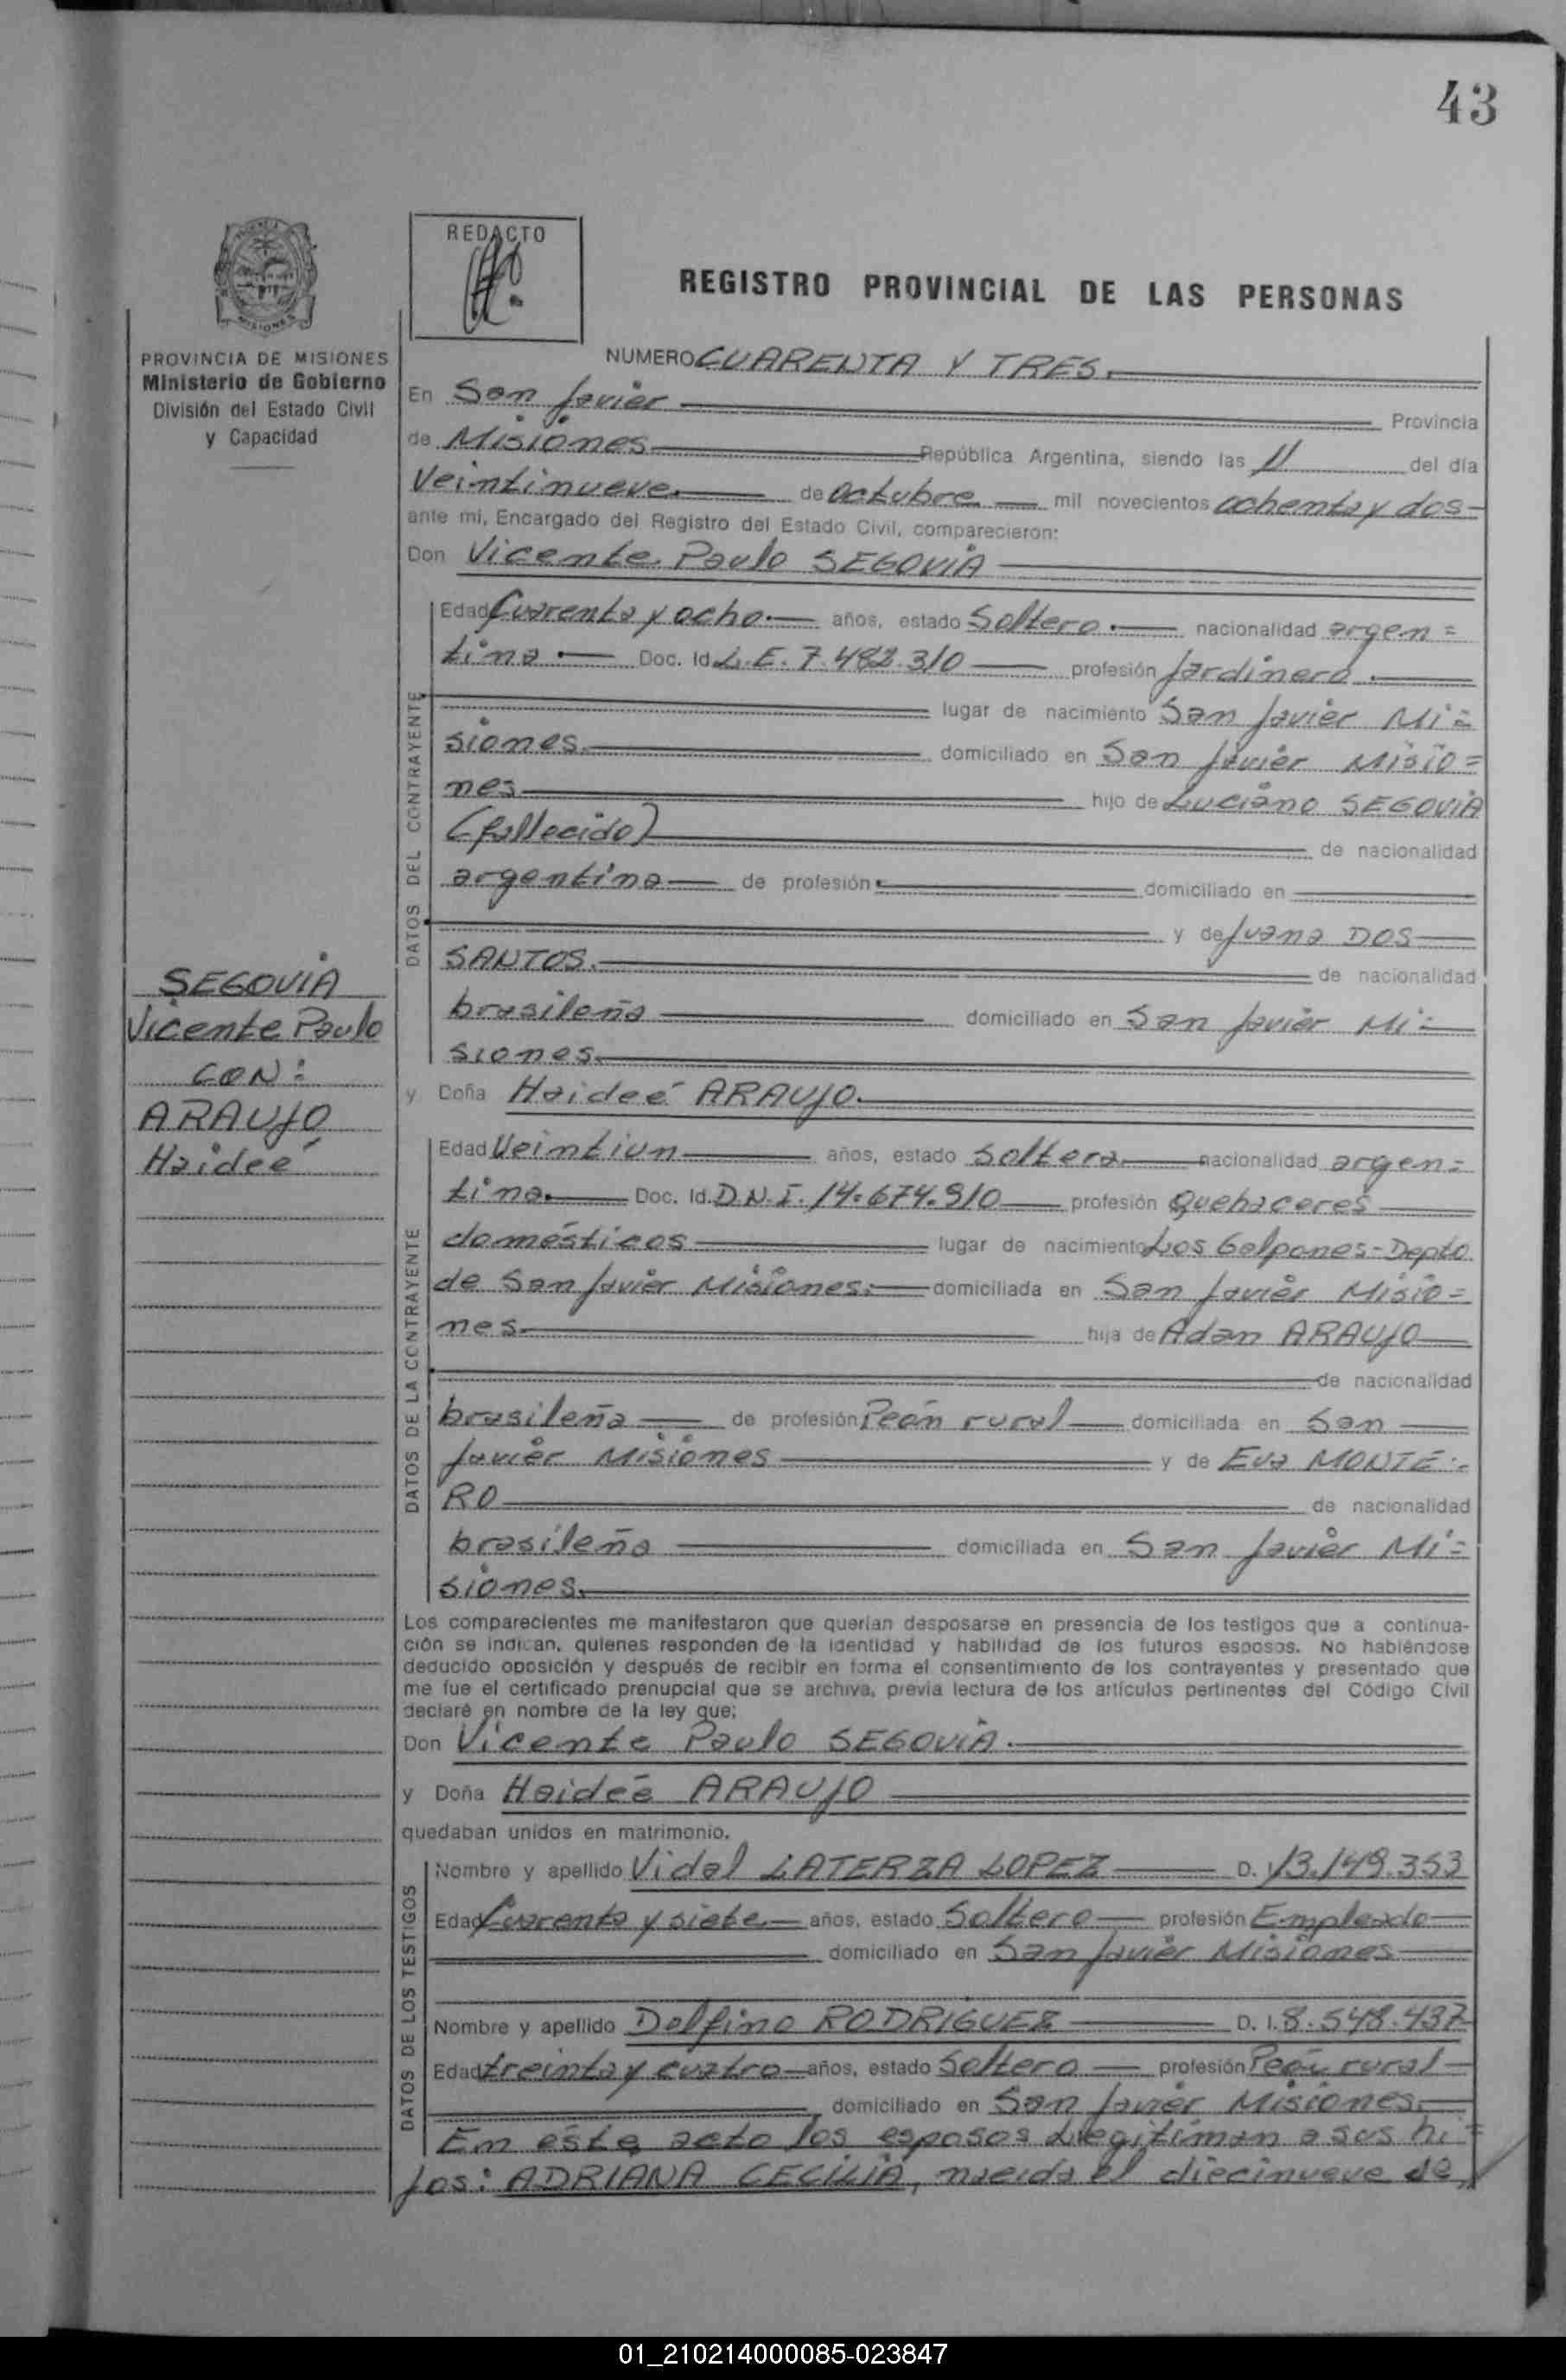 43
REDACTO
REGISTRO PROVINCIAL DE LAS PERSONAS
MISIONES
PROVINCIA DE MISIONES
Ministerio de Gobierno
División del Estado Civil
y Capacidad
SEGOVIA
Vicente Paulo
CON:
ARAUJO
Haideé
NUMERO CUARENTA Y TRES.
En San Javier Provincia
de Misiones República Argentina, siendo las 11 del día
Veintinueve de octubre mil novecientos ochenta y dos
ante mi, Encargado del Registro del Estado Civil, comparecieron:
Don Vicente Paulo SEGOVIA
DATOS DEL CONTRAYENTE
Edad Cuarenta y ocho años, estado Soltero nacionalidad argen=
tina Doc. Id. L.E. 7.482.310 profesión Jardinero
lugar de nacimiento San Javier Mi=
siones domiciliado en San Javier Misio=
nes hijo de Luciano SEGOVIA
(fallecido) de nacionalidad
argentina de profesión domiciliado en
y de Juana DOS
SANTOS. de nacionalidad
brasileña domiciliado en San Javier Mi=
siones.
y Doña Haideé ARAUJO.
DATOS DE LA CONTRAYENTE
Edad Veintiun años, estado Soltera nacionalidad argen=
tina Doc. Id. D.N.I. 14.674.910 profesión Quehaceres
domésticos lugar de nacimiento Los Galpones-Depto
de San Javier Misiones. domiciliada en San Javier Misio=
nes hija de Adan ARAUJO
de nacionalidad
brasileña de profesión Peón rural domiciliada en San
Javier Misiones y de Eva MONTE=
RO de nacionalidad
brasileña domiciliada en San Javier Mi=
siones.
Los comparecientes me manifestaron que querían desposarse en presencia de los testigos que a continua-
ción se indican, quienes responden de la identidad y habilidad de los futuros esposos. No habiéndose
deducido oposición y después de recibir en forma el consentimiento de los contrayentes y presentado que
me fue el certificado prenupcial que se archiva, previa lectura de los artículos pertinentes del Código Civil
declaré en nombre de la ley que:
Don Vicente Paulo SEGOVIA.
y Doña Haideé ARAUJO
quedaban unidos en matrimonio.
DATOS DE LOS TESTIGOS
Nombre y apellido Vidal LATERZA LOPEZ D. I. 13.149.353
Edad Cuarenta y siete años, estado Soltero profesión Empleado
domiciliado en San Javier Misiones
Nombre y apellido Delfino RODRIGUEZ D. I. 8.548.437
Edad treinta y cuatro años, estado Soltero profesión Peón rural
domiciliado en San Javier Misiones.
En este acto los esposos Legitiman a sus hi=
jos: ADRIANA CECILIA, nacida el diecinueve de
01_210214000085-023847